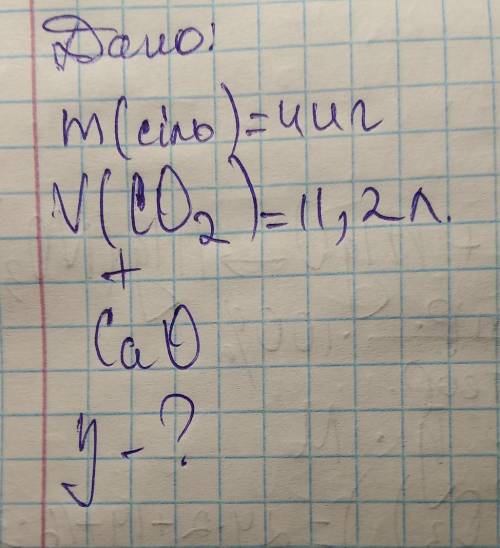 Дано:
m(сіль)=44г
V(CO₂)=11,2л.
+
CaO
y - ?